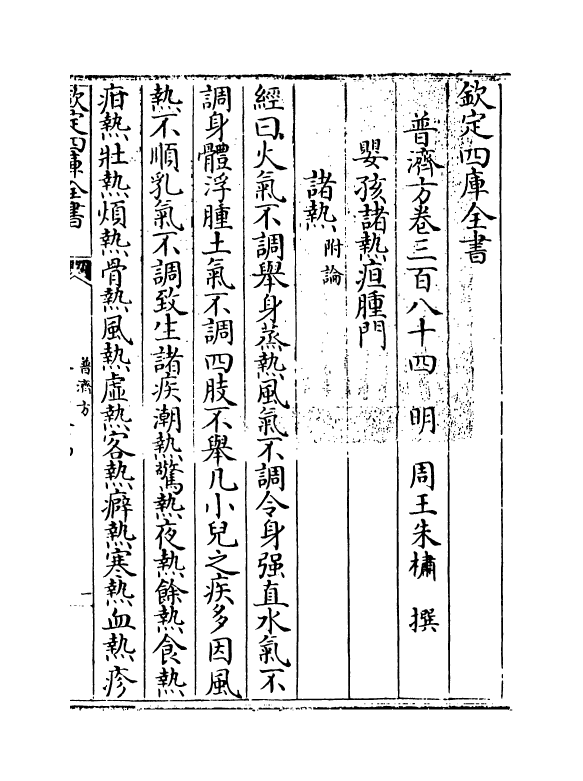 欽定四庫全書
普濟方卷三百八十四　明　周王朱橚　撰
嬰孩諸熱疸腫門
諸熱附論
經曰火氣不調舉身蒸熱風氣不調令身强直水氣不
調身體浮腫土氣不調四肢不舉凡小兒之疾多因風
熱不順乳氣不調致生諸疾潮熱驚熱夜熱餘熱食熱
疳熱壯熱煩熱骨熱風熱虛熱客熱癖熱寒熱血熱疹
欽定四庫全書
普濟方